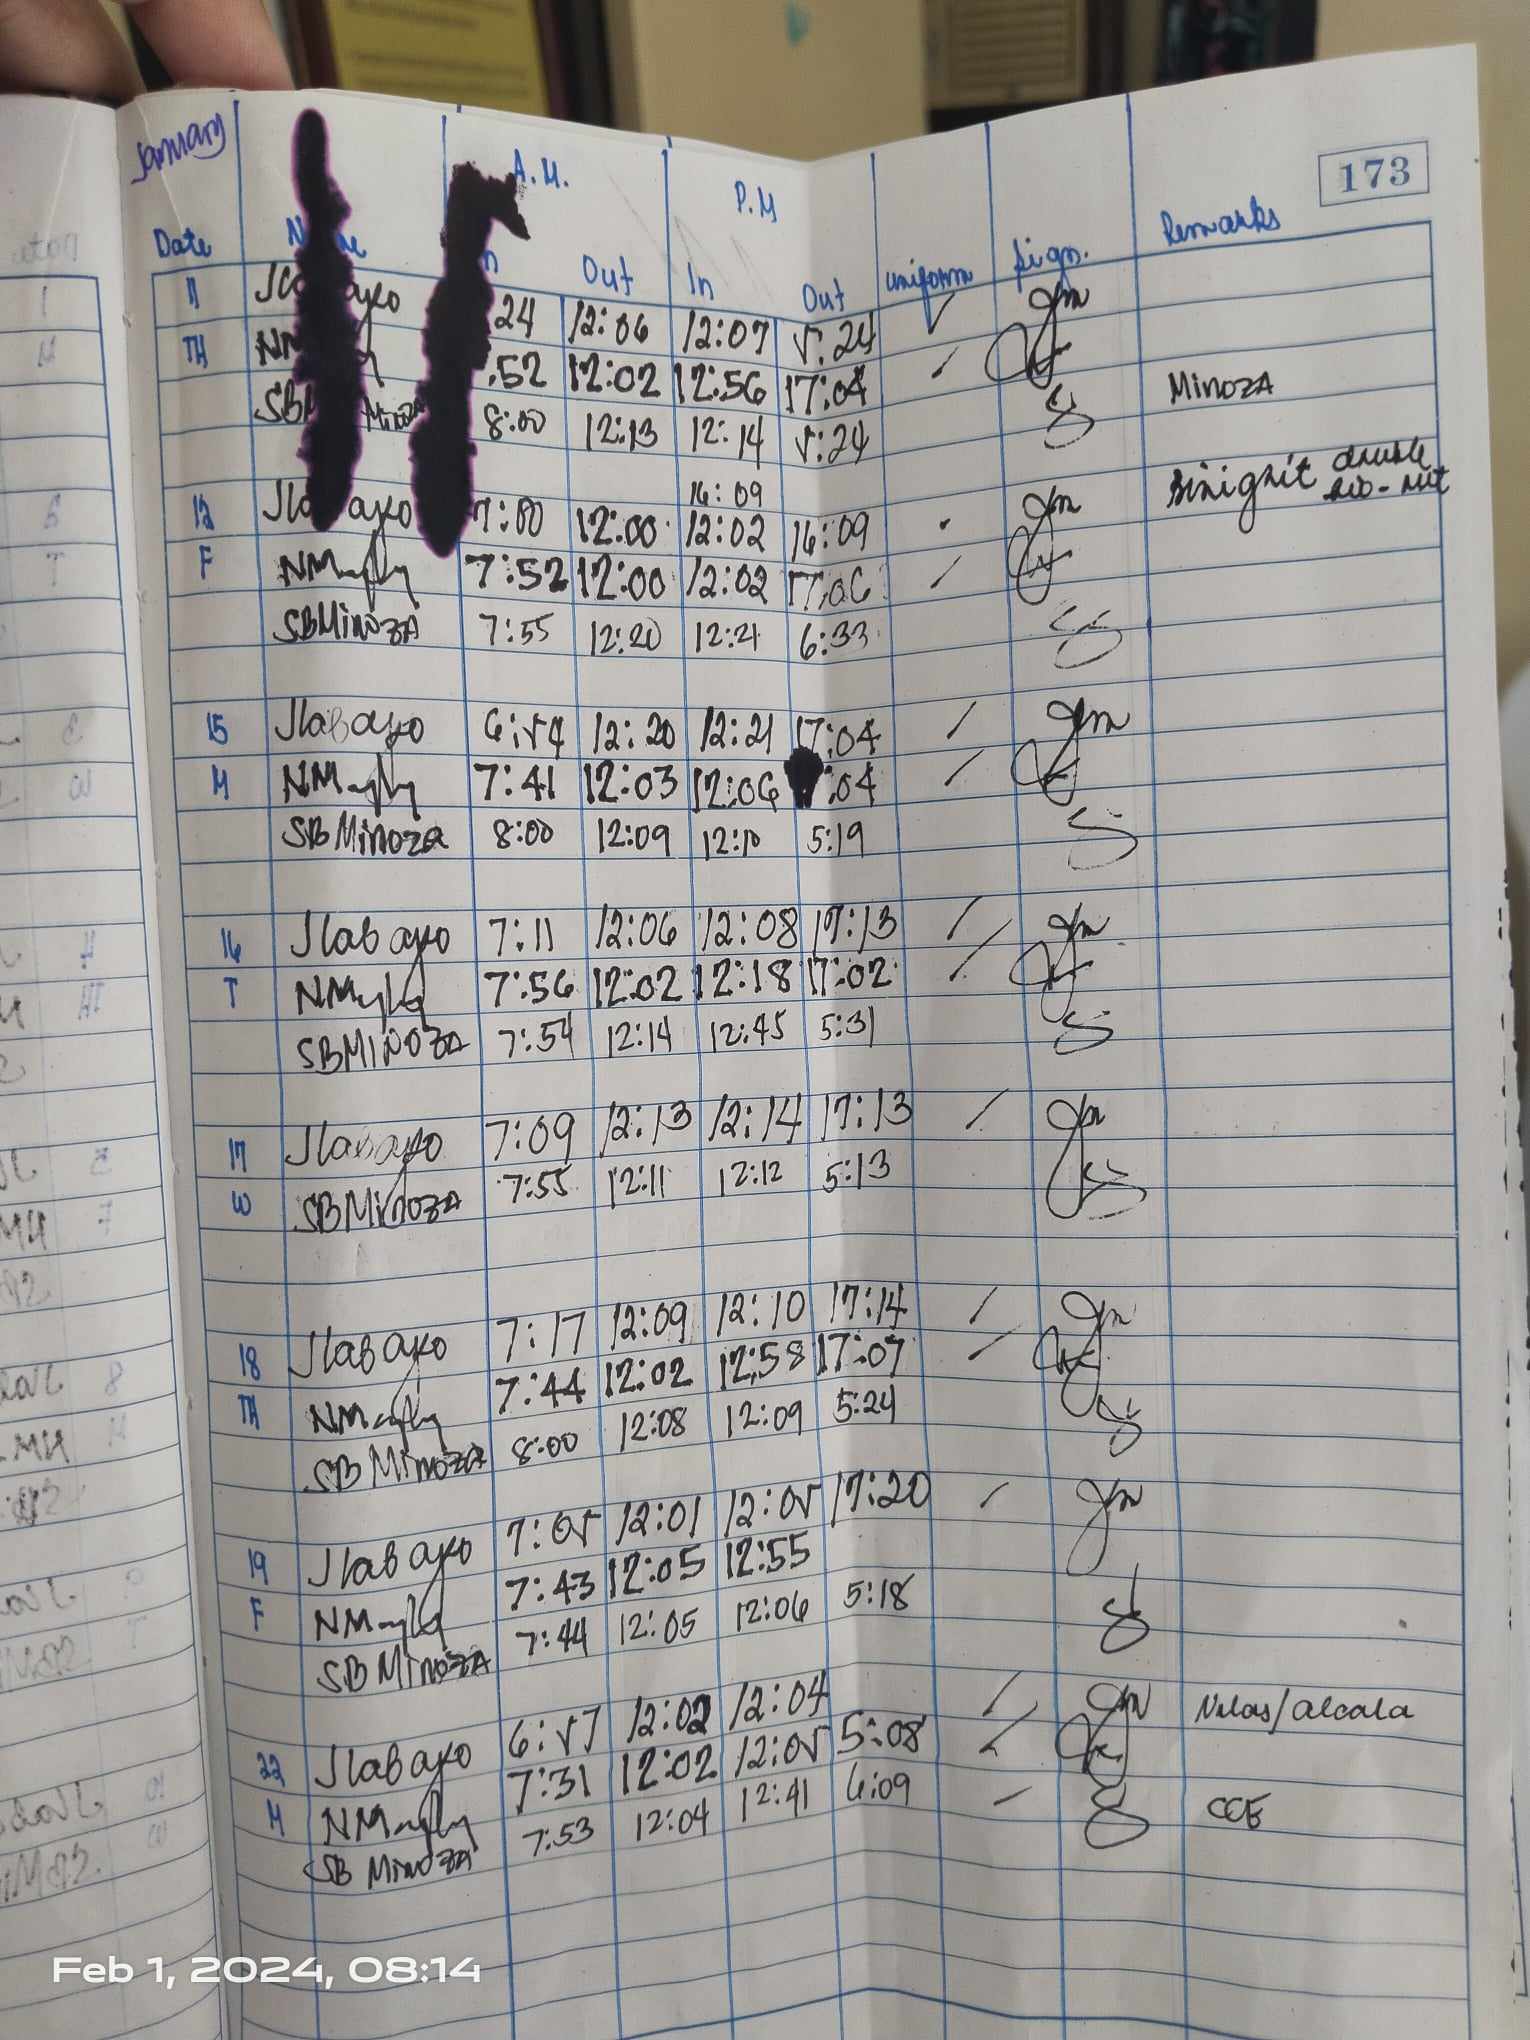 January
173
A.M. P.M
Date In Out In Out uniform sign. Remarks
11 24 12:06 12:07 5:24
TH .52 12:02 12:56 17:04
Minoza 8:00 12:13 12:14 5:24 Minoza
16:09
12 7:00 12:00 12:02 16:09 Binignit double
F 7:52 12:00 12:02 17:06
SBMinoza 7:55 12:20 12:21 6:33
15 Jlabayo 6:54 12:20 12:21 17:04
M 7:41 12:03 12:06 :04
SB Minoza 8:00 12:09 12:10 5:19
16 Jlabayo 7:11 12:06 12:08 17:13
T 7:56 12:02 12:18 17:02
SBMINOZA 7:54 12:14 12:45 5:31
17 Jlabayo 7:09 12:13 12:14 17:13
W SBMinoza 7:55 12:11 12:12 5:13
18 Jlabayo 7:17 12:09 12:10 17:14
TH 7:44 12:02 12:58 17:07
SB Minoza 8:00 12:08 12:09 5:24
19 Jlabayo 7:05 12:01 12:05 17:20
F 7:43 12:05 12:55
SB Minoza 7:44 12:05 12:06 5:18
22 Jlabayo 6:57 12:02 12:04 Nulas/alcala
M 7:31 12:02 12:05 5:08
SB Minoza 7:53 12:04 12:41 6:09 CCE
Feb 1, 2024, 08:14